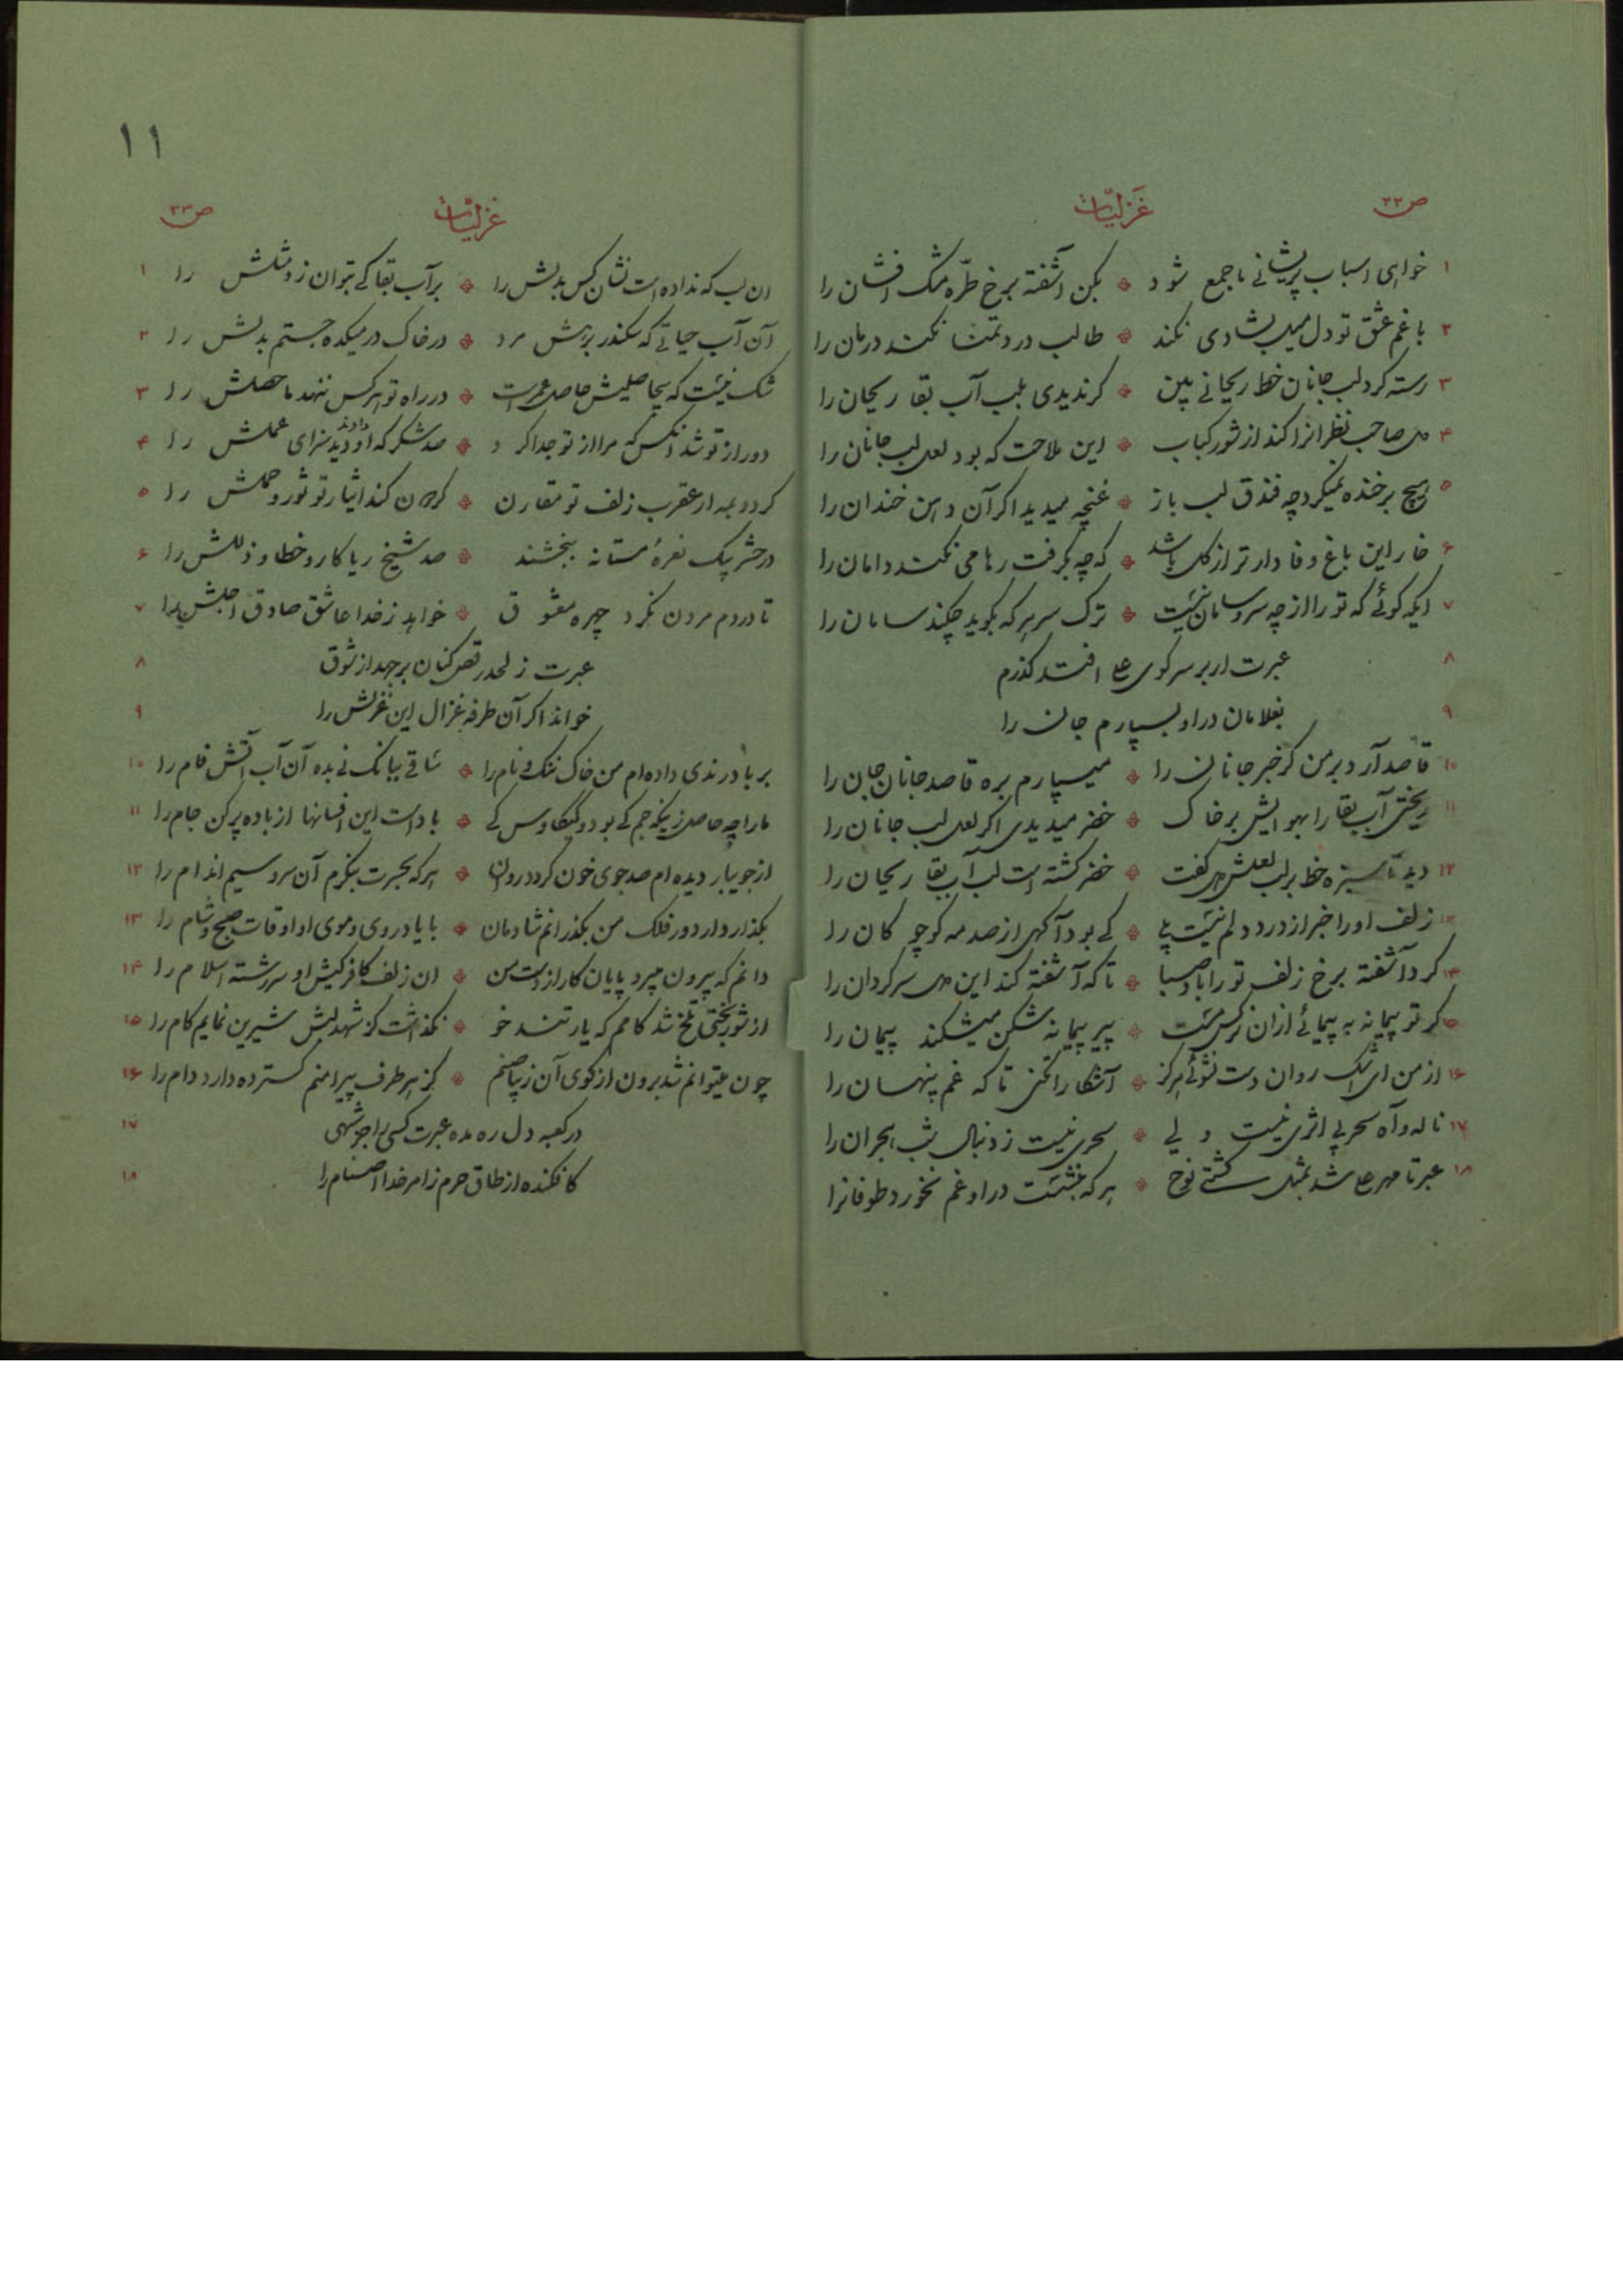 ص ۲۲
غزلیات
۱ خواهی اسباب پریشانی ما جمع شود * بکن آشفته برخ طرّه مشک افشان را
۲ با غم عشق تو دل میل بشادی نکند * طالب درد تمنا نکند درمان را
۳ رسته کرد لب جانان خط ریحانی بین * کر ندیدی بلب آب بقا ریحان را
۴ دل صاحب نظرانرا کند از شور کباب * این ملاحت که بود لعل لب جانان را
۵ هیچ بر خنده نمیکرد چه فندق لب باز * غنچه میدید اکر آن دهن خندان را
۶ خار این باغ وفادار تر از کل باشد * که چه بکرفت رها می نکند دامان را
۷ ایکه کوئی که تو را از چه سر و سامان نیست * ترک سر هر که بکوید چکند سامان را
۸ عبرت ار بر سر کوی علی افتد کذرم
۹ بغلامان در او بسپارم جان را
۱۰ قاصد آرد بر من کر خبر جانان را * میسپارم بره قاصد جانان جان را
۱۱ ریختی آب بقا را بهوایش بر خاک * خضر میدیدی اکر لعل لب جانان را
۱۲ دید تا سبزه خط بر لب لعلش دل کفت * خضر کشته است لب آب بقا ریحان را
۱۳ زلف او را خبر از درد دلم نیست بلی * کی بود آکهی از صدمه کو چوکان را
۱۴ کرد آشفته برخ زلف تو را باد صبا * تا که آشفته کند این دل سرکردان را
۱۵ کر تو پیمانه به پیمائی ازان نرکس مست * پیر پیمانه شکن میشکند پیمان را
۱۶ از من ای اشک روان دست نشوئی هرکز * آشکارا نکنی تا که غم پنهان را
۱۷ ناله و آه سحر بی اثری نیست ولی * سحری نیست ز دنبال شب هجران را
۱۸ عبرتا مهر علی شد بمثل کشتی نوح * هر که بنشست در او غم نخورد طوفانرا
۱۱
غزلیات
ص ۲۳
ان لب که نداده است نشان کس بدلش را * بر آب بقا کی بتوان زد مثلش را ۱
آن آب حیاتی که سکندر بزپش مرد * در خاک در میکده جستم بدلش را ۲
شک نیست که بیحاصلیش حاصل عمر است * در راه تو هر کس ننهد ماحصلش را ۳
دور از تو شد انکس که مرا از تو جدا کرد * صد شکر که او دید سزای عملش را ۴
کردد بمه ار عقرب زلف تو مقارن * کردون کند ایثار تو ثور و حملش را ۵
در حشر بیک نعرهٔ مستانه ببخشند * صد شیخ ریاکار و خطا و ذللش را ۶
تا در دم مردن نکرد چهره معشوق * خواهد ز خدا عاشق صادق اجلش را ۷
عبرت ز لحد رقص کنان برجهد از شوق ۸
خواند اکر آن طرفه غزال این غزلش را ۹
بر باد رندی داده ام من خاک ننک و نام را * ساقی ببانک نی بده آن آب آتش فام را ۱۰
ما را چه حاصل زینکه جم کی بود و کیکاوس کی * باد است این افسانها از باده پر کن جام را ۱۱
از جویبار دیده ام صد جوی خون کردد روان * هر که بحسرت بنکرم آن سرو سیم اندام را ۱۲
بکذار دار دور فلک من بکذرانم شادمان * با یاد روی و موی او اوقات صبح و شام را ۱۳
دانم که بیرون میبرد پایان کار از دست من * ان زلف کافر کیش او سررشته اسلام را ۱۴
از شور بختی تلخ شد کامم که یار تند خو * نکذاشت کز شهد لبش شیرین نمایم کام را ۱۵
چون میتوانم شد برون از کوی آن زیبا صنم * کز هر طرف پیرامنم کسترده دارد دام را ۱۶
در کعبه دل ره مده عبرت کسی را جز شهی ۱۷
کافکنده از طاق حرم ز امر خدا اصنام را ۱۸